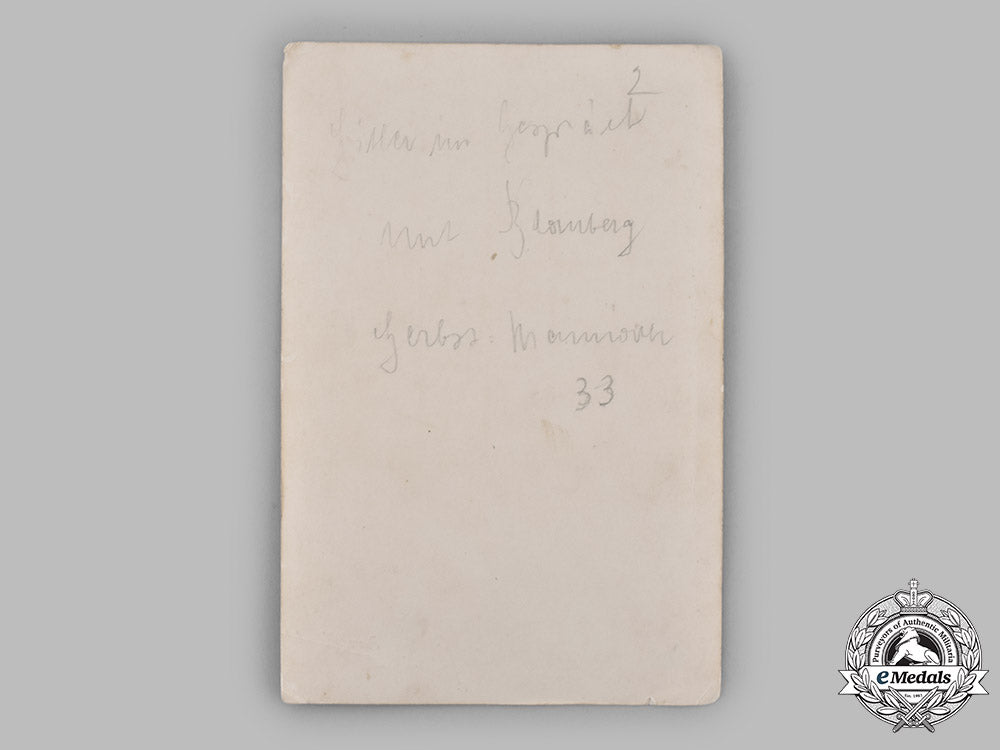 2
Hitler im Gespräch
mit Blomberg
Herbst. Mannöver
33
Purveyors of Authentic Militaria
eMedals